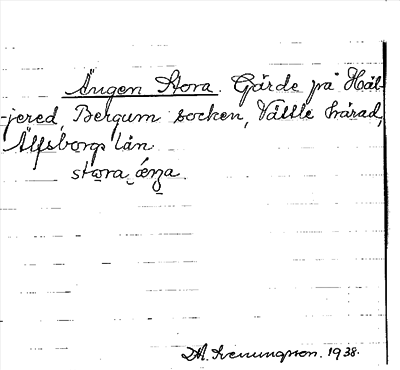 Ängen Stora. Gärde på Häl-
-jered, Bergum socken, Vättle härad,
Älfsborgs län
stora æna.
Svenungsson. 1938.